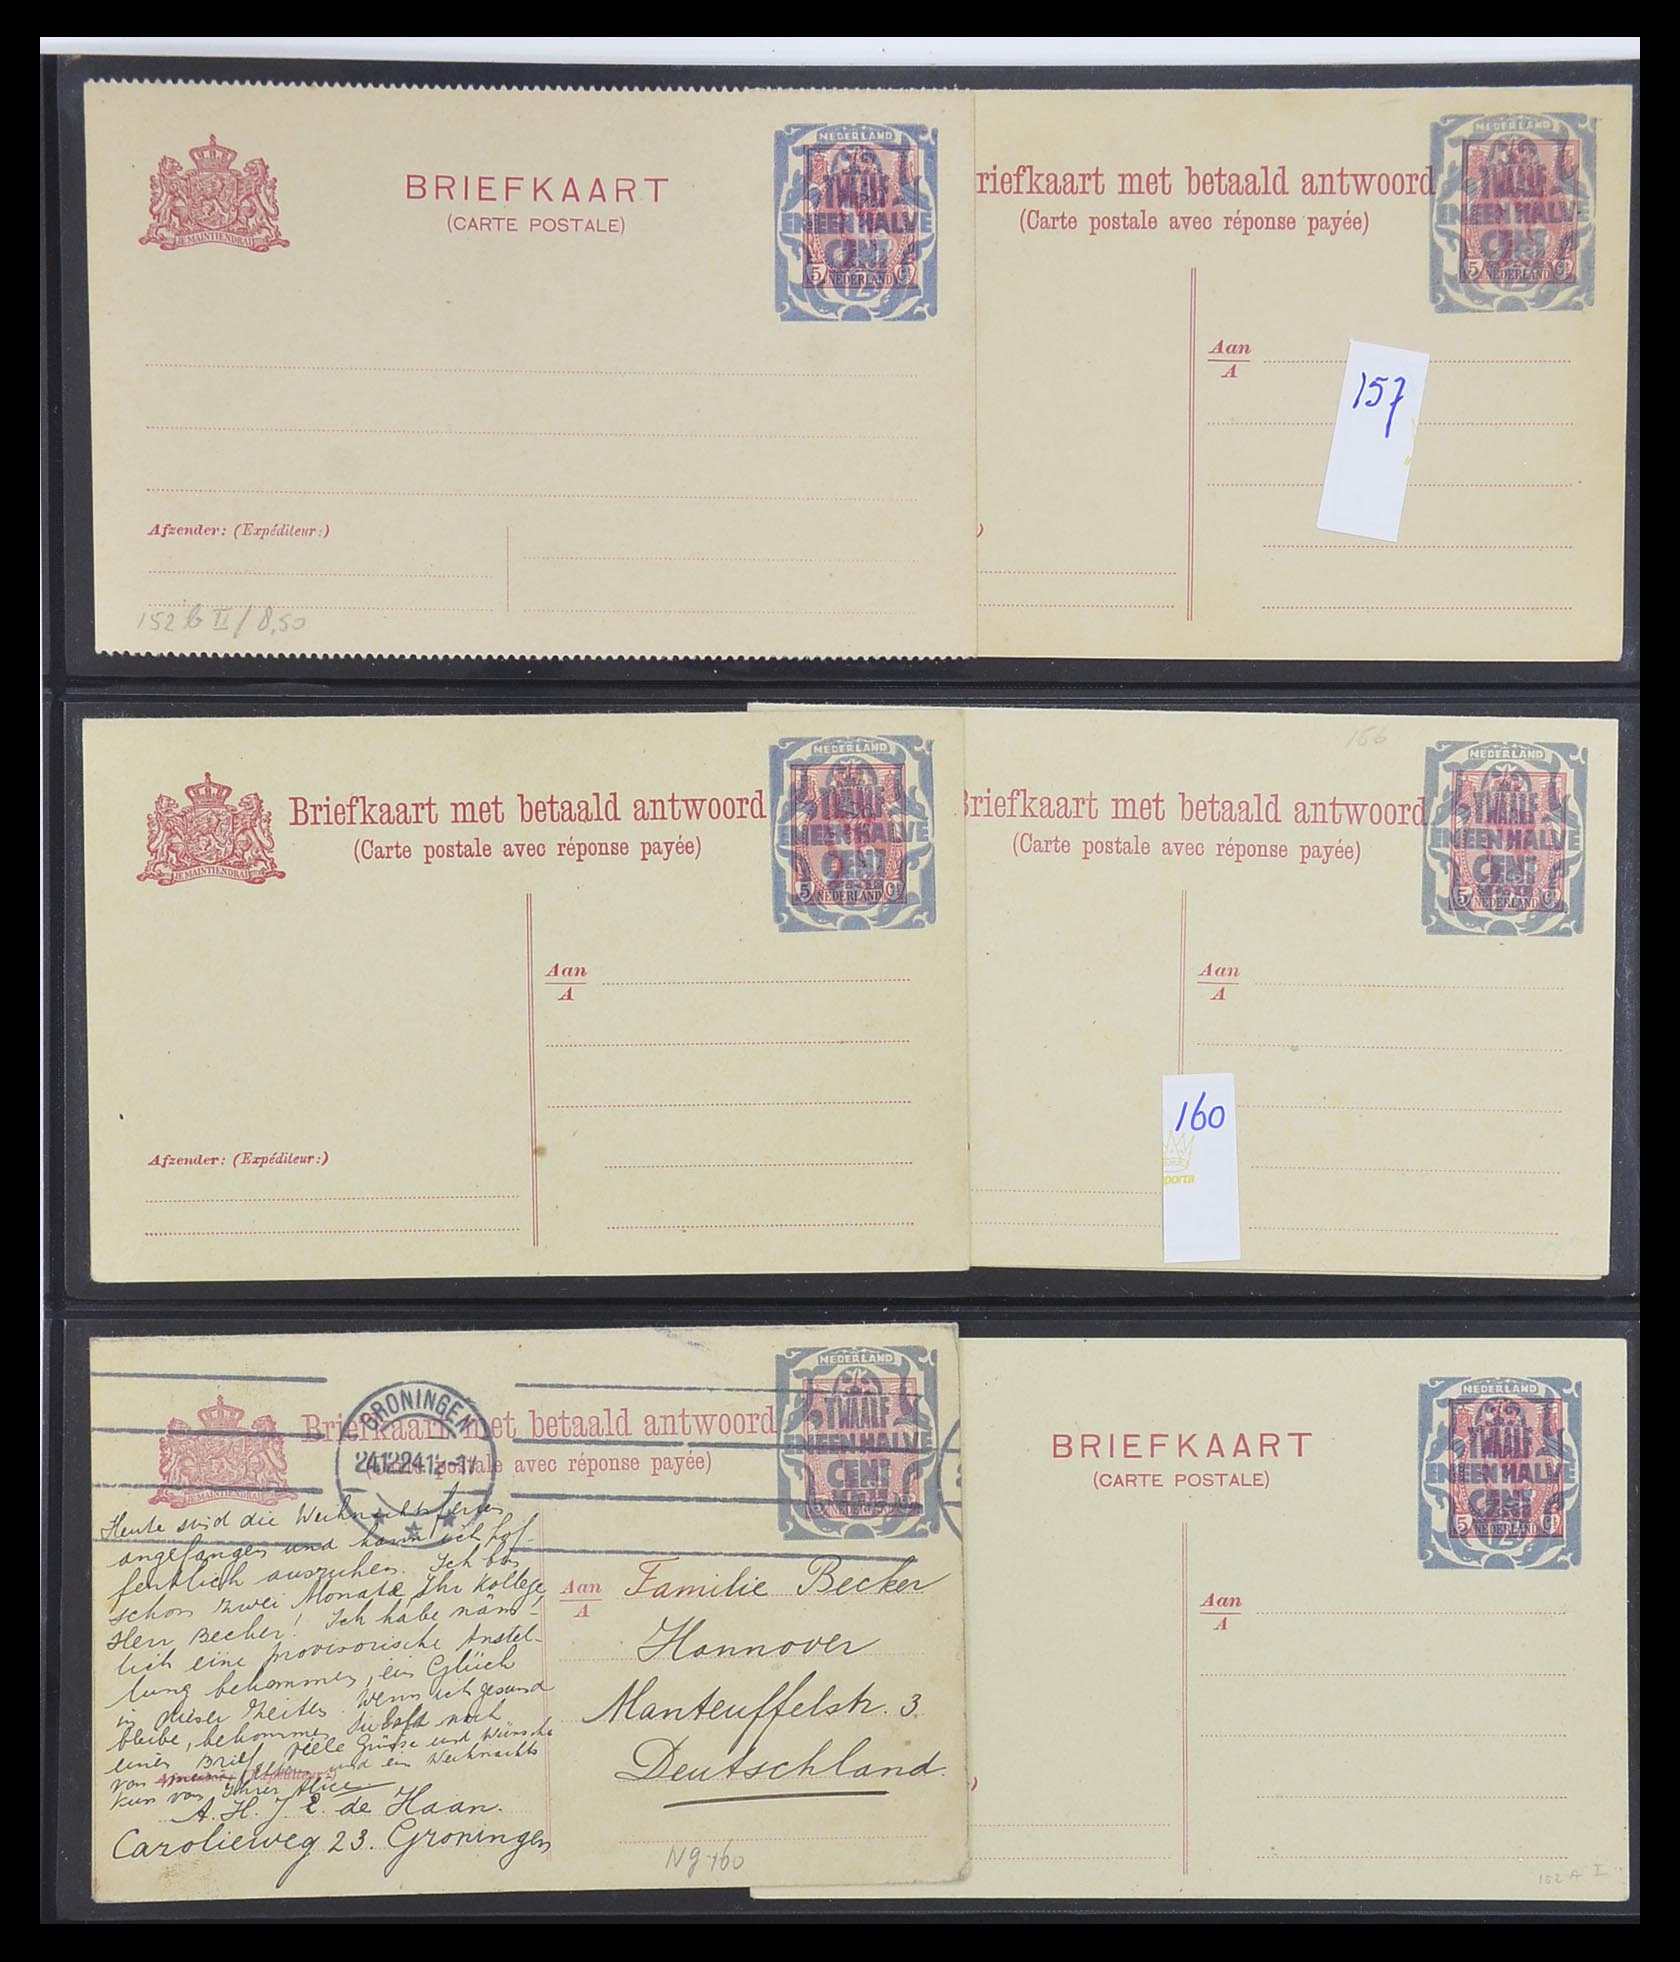 BRIEFKAART
(CARTE POSTALE)
JE MAINTIENDRAI
NEDERLAND
TWAALF
EN EEN HALVE
CENT
5 NEDERLAND Ct
Afzender: (Expéditeur:)
152 b II / 8,50
riefkaart met betaald antwoord
(Carte postale avec réponse payée)
NEDERLAND
TWAALF
EN EEN HALVE
CENT
5 NEDERLAND Ct
Aan
A
157
)
Briefkaart met betaald antwoord
(Carte postale avec réponse payée)
JE MAINTIENDRAI
NEDERLAND
TWAALF
EN EEN HALVE
CENT
5 NEDERLAND Ct
Aan
A
Afzender: (Expéditeur:)
156
Briefkaart met betaald antwoord
(Carte postale avec réponse payée)
NEDERLAND
TWAALF
EN EEN HALVE
CENT
5 NEDERLAND Ct
Aan
A
160
porta
Briefkaart met betaald antwoord
postale avec réponse payée)
JE MAINTIENDRAI
GRONINGEN
NEDERLAND
TWAALF
EN EEN HALVE
CENT
Heute sind die Weihnachtsferien
angefangen und kann ich hof-
fentlich ausruhen. Ich bin
schon zwei Monate Ihr Kollege,
Herr Becker! Ich habe näm-
lich eine provisorische Anstel-
lung bekommen, ein Glück
in dieser Zeiten. Wenn ich gesund
bleibe, bekommen Sie bald noch
einen Brief. Viele Grüsse und Wünsche
von meinen Eltern und ein Weihnachts
von Ihrer Alice
A. H. J. E. de Haan.
Carolieweg 23. Groningen
Aan
A
Familie Becker
Hannover
Manteuffelstr. 3.
Deutschland.
Ng 160
BRIEFKAART
(CARTE POSTALE)
NEDERLAND
TWAALF
EN EEN HALVE
CENT
5 NEDERLAND Ct
12½
Aan
A
)
152 A I